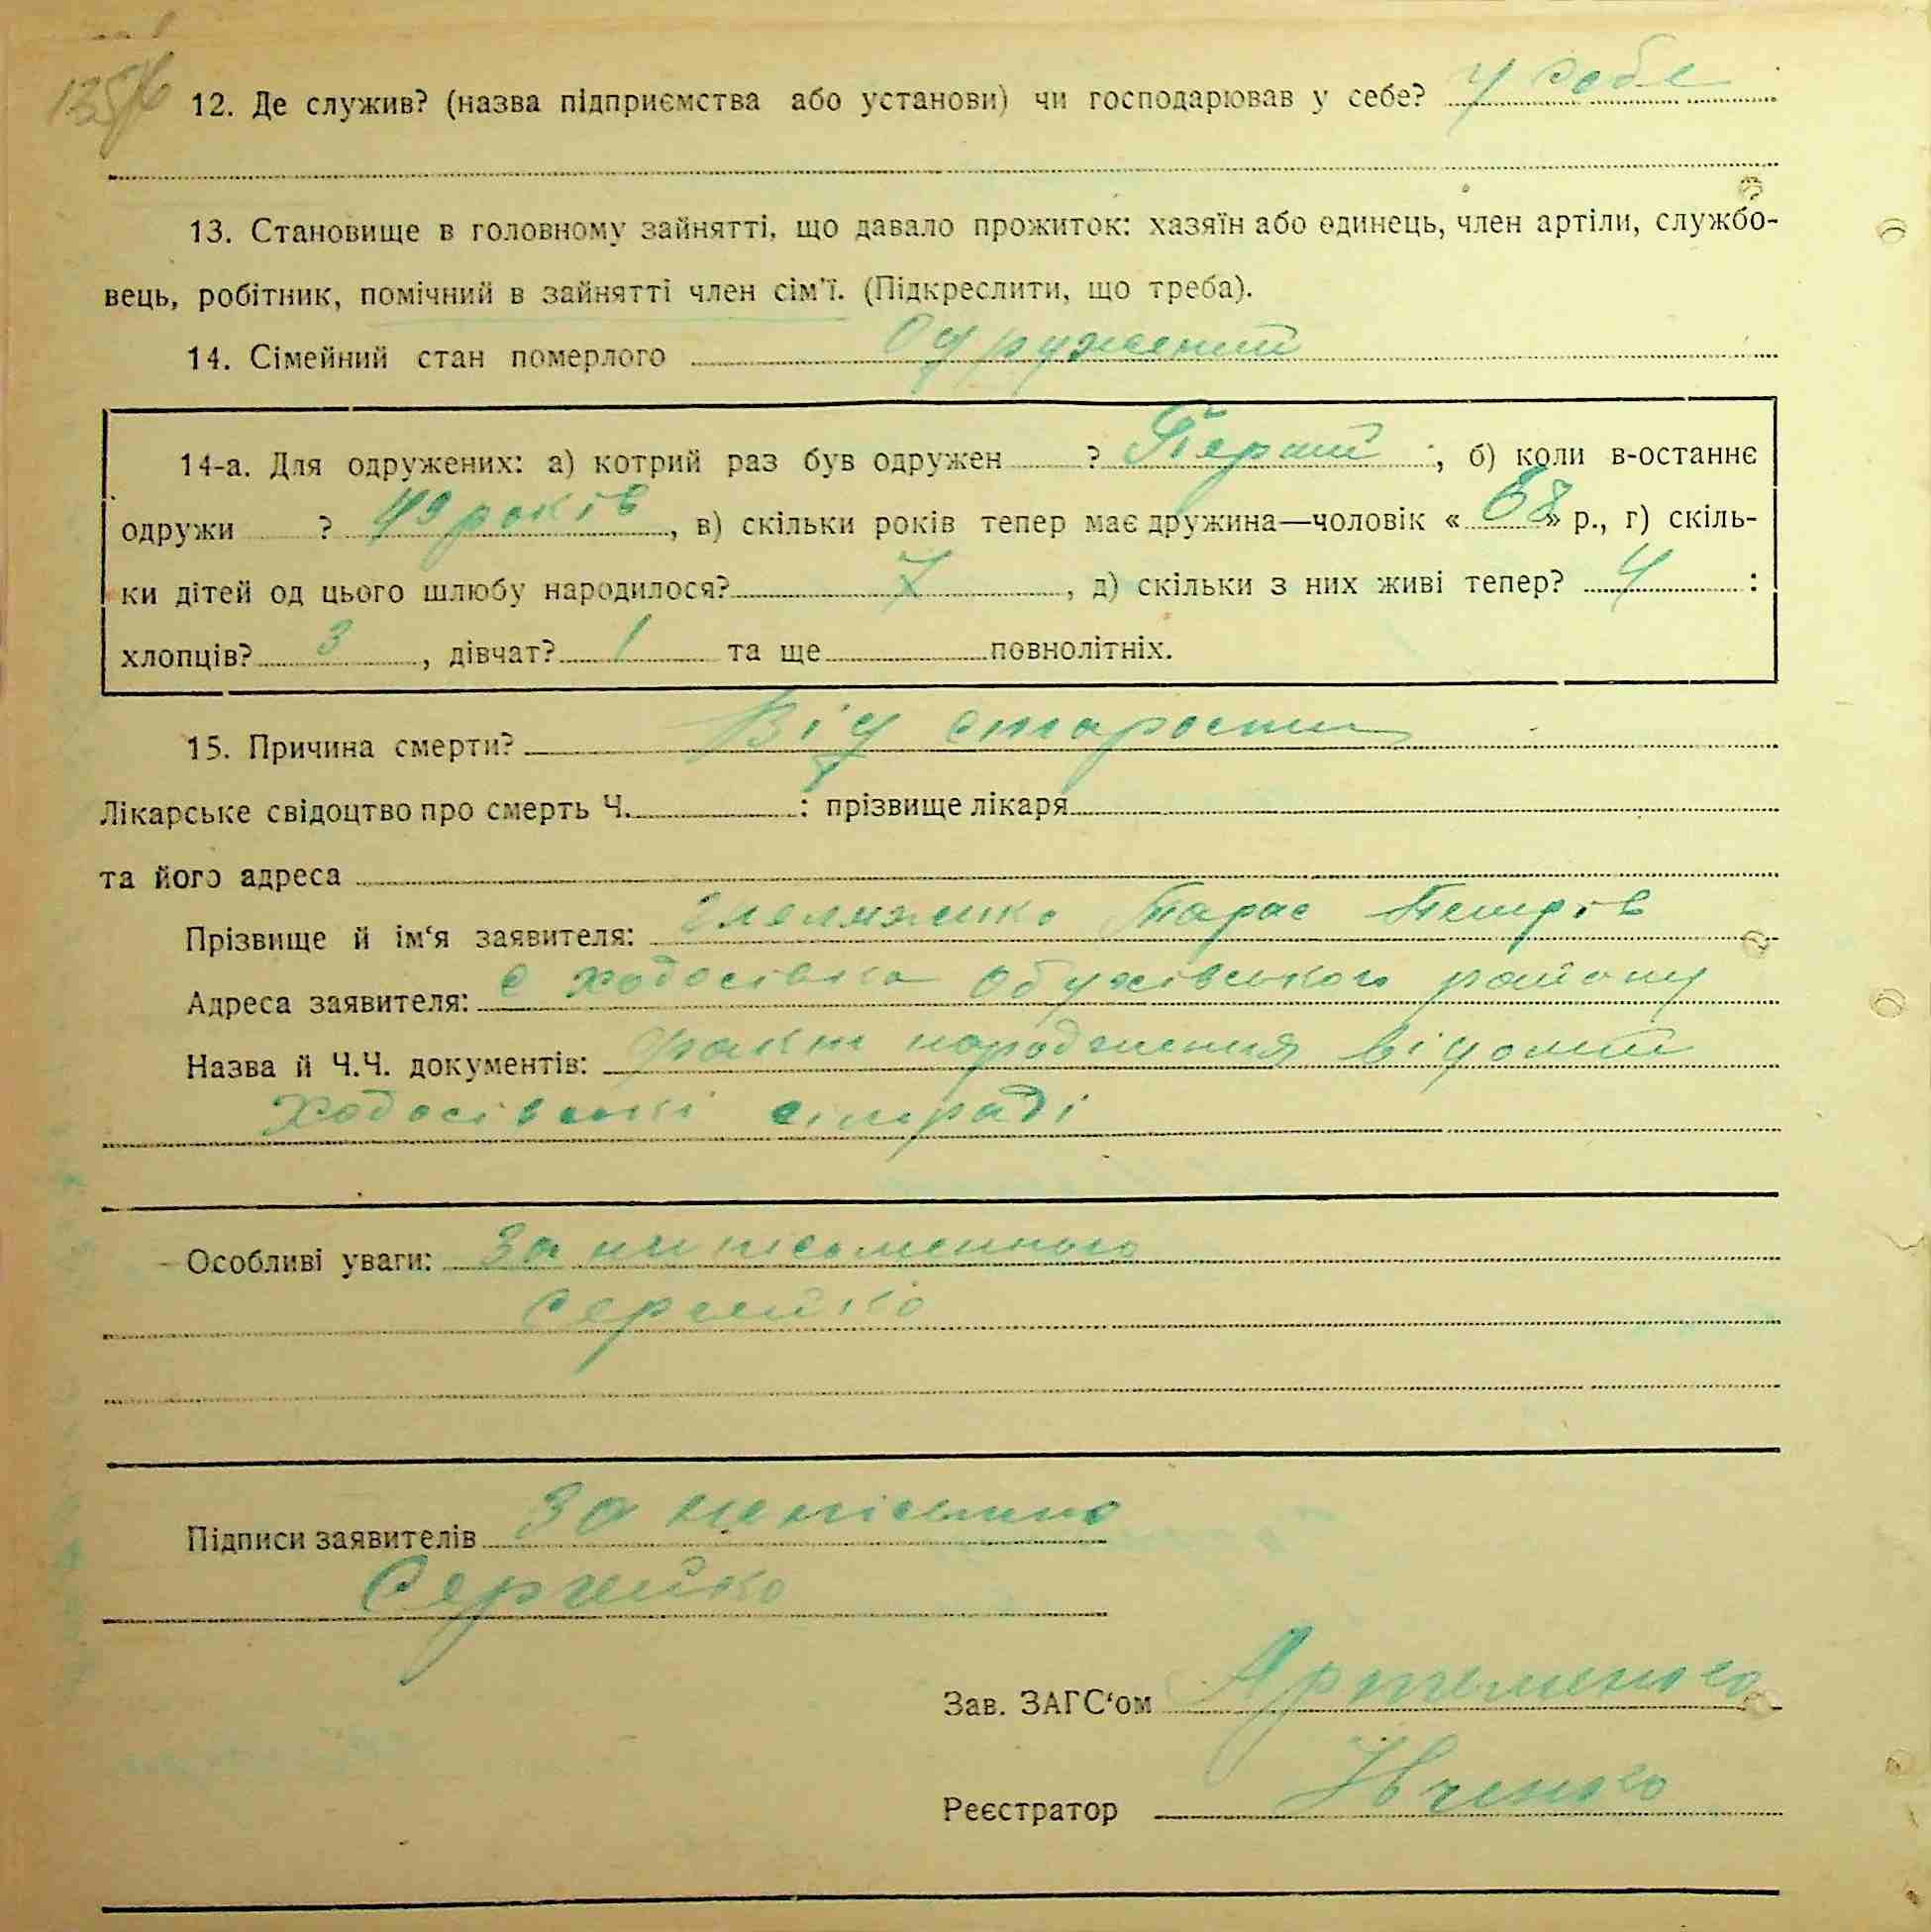 12. Де служив? (назва підприємства або установи) чи господарював у себе? у себе
13. Становище в головному зайнятті, що давало прожиток: хазяїн або одинець, член артіли, службо-
вець, робітник, помічний в зайнятті член сім'ї. (Підкреслити, що треба).
14. Сімейний стан померлого Одружений
14-а. Для одружених: а) котрий раз був одружен ? Перший ; б) коли в-останнє
одружи ? 49 років, в) скільки років тепер має дружина—чоловік « 68 » р., г) скіль-
ки дітей од цього шлюбу народилося? 7, д) скільки з них живі тепер? 4 :
хлопців? 3, дівчат? 1 та ще повнолітніх.
15. Причина смерти? Від старости
Лікарське свідоцтво про смерть Ч. : прізвище лікаря
та його адреса
Прізвище й ім'я заявителя: Тарас Петрів
Адреса заявителя: с Ходосівка Обухівського району
Назва й Ч.Ч. документів: Факт народження відомий
Ходосівскі сілраді
Особливі уваги: За ниписьменного
Сергейко
Підписи заявителів За неписьмено
Сергейко
Зав. ЗАГС'ом Артеменко
Реєстратор